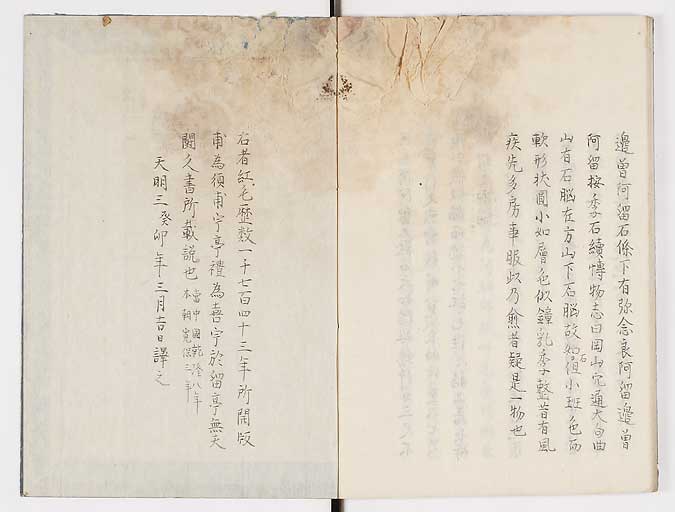 邊曾阿留石條下有弥念良阿留邊曽
阿留按季石續慱物志曰岡山穴通大句曲
山有石脳在方山下石脳故如石但小班色而
軟形状圓小如層色似鐘乳季整昔有風
疾先多房事眼此乃愈昔疑是一物也
右者紅毛歴数一千七百四十三年所開版
甫為須甫宇亭禮為喜宇於留亭無天
閼久書所載説也當中國乾隆八年
本朝寛保三年
天明三癸卯年三月吉日譯之